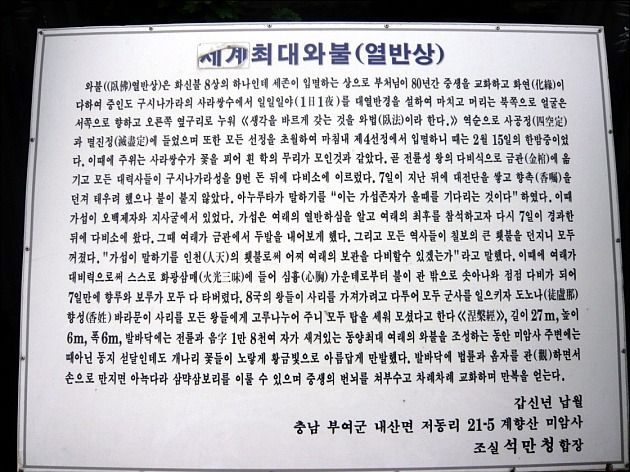 세계최대와불(열반상)
와불((臥佛)열반상)은 화신불 8상의 하나인데 세존이 입멸하는 상으로 부처님이 80년간 중생을 교화하고 화연(化緣)이
다하여 중인도 구시나가라의 사라쌍수에서 일일일야(1日1夜)를 대열반경을 설하여 마치고 머리는 북쪽으로 얼굴은
서쪽으로 향하고 오른쪽 옆구리로 누워 <생각을 바르게 갖는 것을 와법(臥法)이라 한다.> 역순으로 사공정(四空定)
과 멸진정(滅盡定)에 들었으며 또한 모든 선정을 초월하여 마침내 제4선정에서 입멸하니 때는 2월 15일의 한밤중이었
다. 이때에 주위는 사라쌍수가 꽃을 피어 흰 학의 무리가 모인것과 같았다. 곧 전륜성 왕의 다비식으로 금관(金棺)에 옮
기고 모든 대력사들이 구시나가라성을 9번 돈 뒤에 다비소에 이르렀다. 7일이 지난 뒤에 대전단을 쌓고 향촉(香囑)을
던져 태우려 했으나 불이 붙지 않았다. 아누루타가 말하기를 "이는 가섭존자가 올때를 기다리는 것이다" 하였다. 이때
가섭이 오백제자와 지사굴에서 있었다. 가섭은 여래의 열반하심을 알고 여래의 최후를 참석하고자 다시 7일이 경과한
뒤에 다비소에 왔다. 그때 여래가 금관에서 두발을 내어보게 했다. 그리고 모든 역사들이 칠보의 큰 횃불을 던지니 모두
꺼졌다. "가섭이 말하기를 인천(人天)의 횃불로써 어찌 여래의 보관을 다비할수 있겠는가" 라고 말했다. 이때에 여래가
대비력으로써 스스로 화광삼매(火光三昧)에 들어 심흉(心胸) 가운데로부터 불이 관 밖으로 솟아나와 점점 다비가 되어
7일만에 향루와 보루가 모두 다 타버렸다. 8국의 왕들이 사리를 가져가려고 다투어 모두 군사를 일으키자 도노나(徒盧那)
향성(香姓) 바라문이 사리를 모든 왕들에게 고루나누어 주니 모두 탑을 세워 모셨다고 한다 《涅槃經》, 길이 27m, 높이
6m, 폭6m, 발바닥에는 전륜과 옴字 1만 8천여 자가 새겨있는 동양최대 여래의 와불을 조성하는 동안 미암사 주변에는
때아닌 동지 섣달인데도 개나리 꽃들이 노랗게 황금빛으로 아름답게 만발했다. 발바닥에 법륜과 옴자를 관(觀)하면서
손으로 만지면 아뇩다라 삼먁삼보리를 이룰 수 있으며 중생의 번뇌를 쳐부수고 차례차례 교화하며 만복을 얻는다.
갑신년 납월
충남 부여군 내산면 저동리 21-5 계향산 미암사
조실 석만청 합장